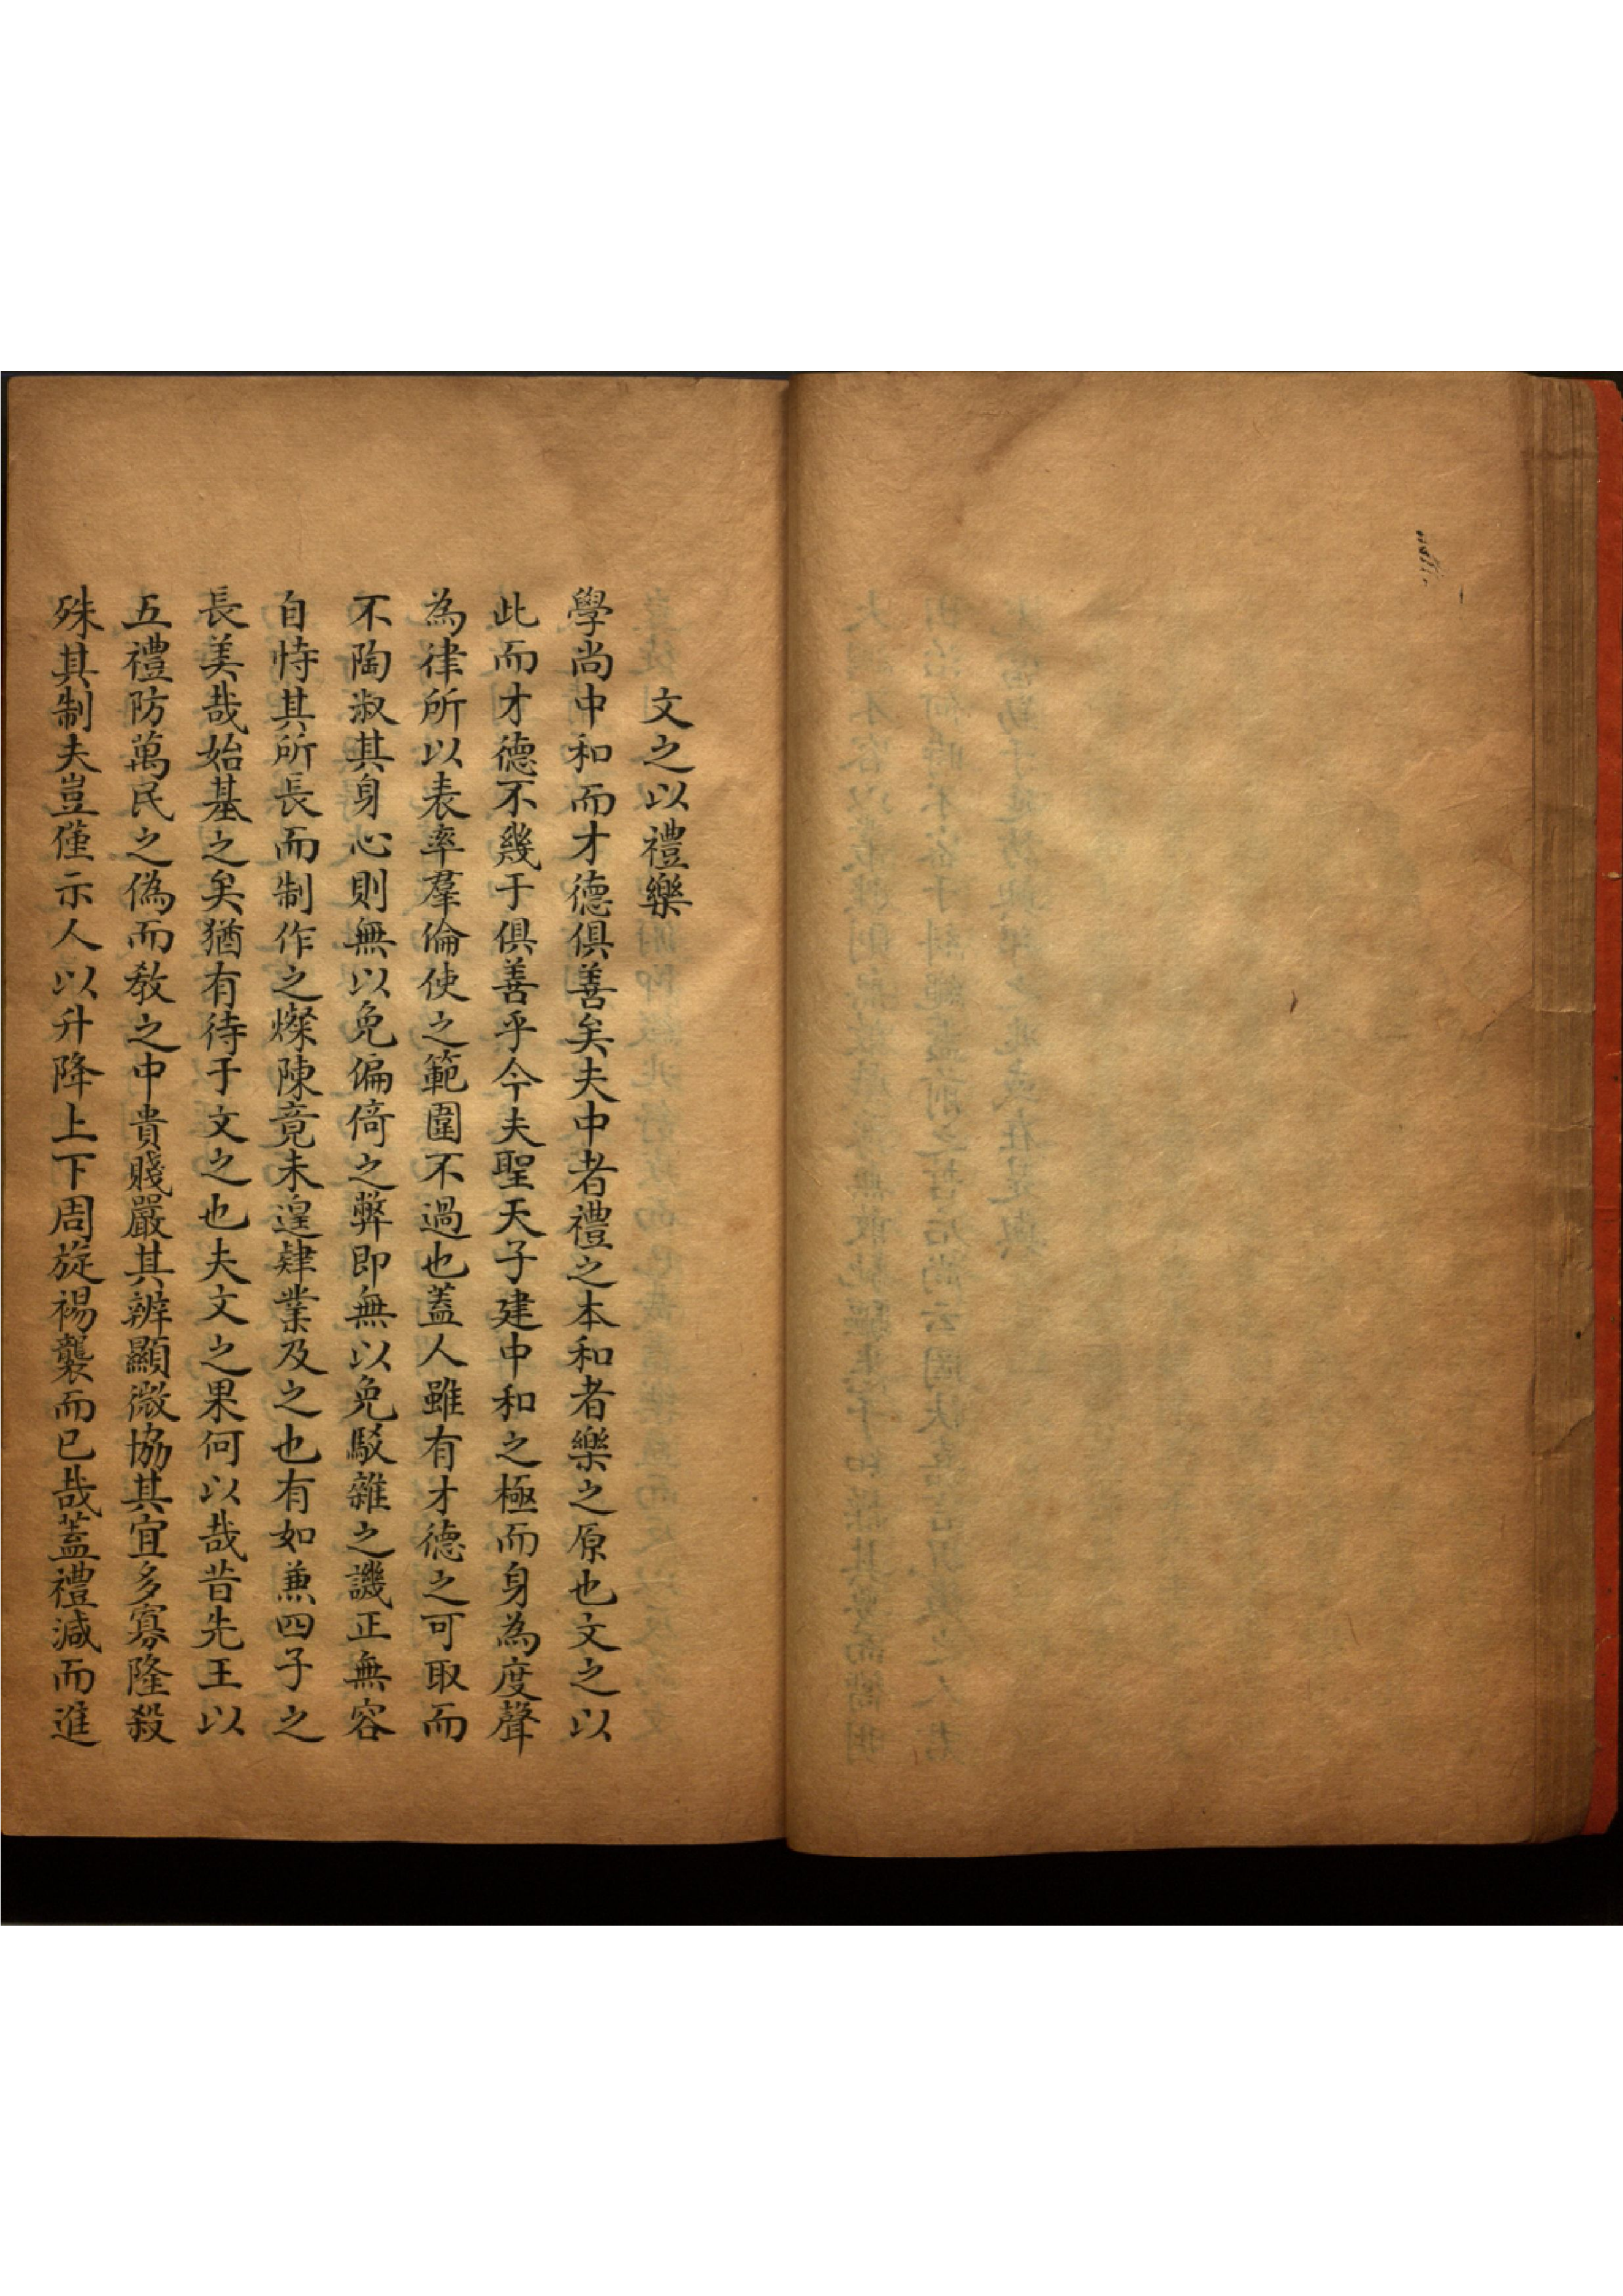 文之以禮樂
學尚中和而才德俱善矣夫中者禮之本和者樂之原也文之以
此而才德不幾于俱善乎今夫聖天子建中和之極而身為度聲
為律所以表率羣倫使之範圍不過也蓋人雖有才德之可取而
不陶淑其身心則無以免偏倚之弊即無以免駁雜之譏正無容
自恃其所長而制作之燦陳竟未遑肄業及之也有如兼四子之
長美哉始基之矣猶有待于文之也夫文之果何以哉昔先王以
五禮防萬民之偽而教之中貴賤嚴其辨顯微協其宜多寡隆殺
殊其制夫豈僅示人以升降上下周旋裼襲而已哉蓋禮減而進